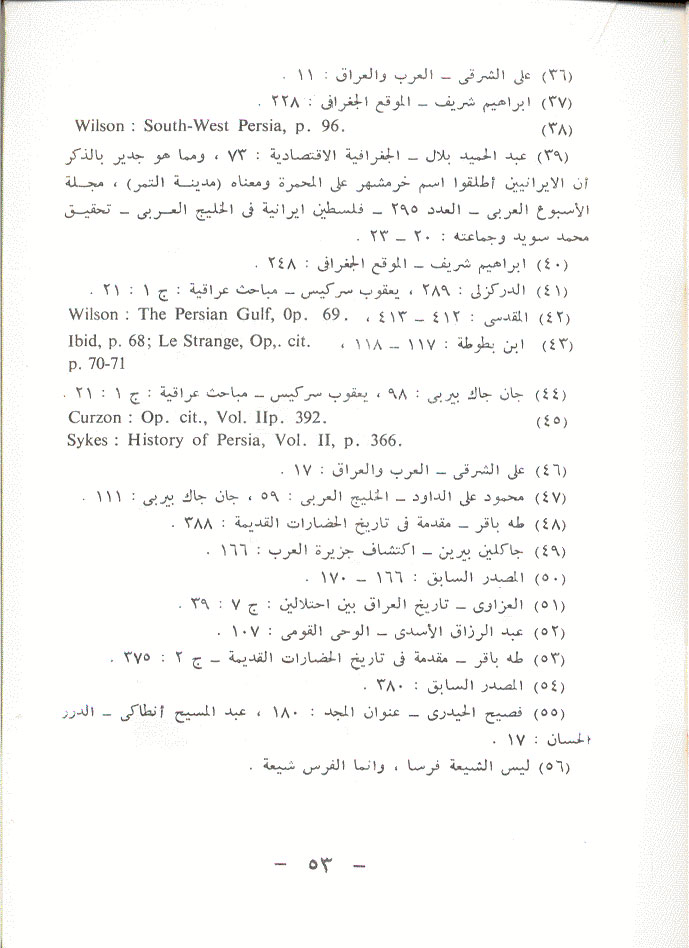 (٣٦) على الشرقى ــ العرب والعراق : ١١ .
(٣٧) ابراهيم شريف ــ الموقع الجغرافى : ٢٢٨ .
(٣٨) Wilson : South-West Persia, p. 96.
(٣٩) عبد الحميد بلال ــ الجغرافية الاقتصادية : ٧٣ ، ومما هو جدير بالذكر
أن الايرانيين أطلقوا اسم خرمشهر على المحمرة ومعناه (مدينــة التمر) ، مجــلة
الأسبوع العربى ــ العدد ٢٩٥ ــ فلسطين ايرانية فى الخليج العــربى ــ تحقيــق
محمد سويد وجماعته : ٢٠ ــ ٢٣ .
(٤٠) ابراهيم شريف ــ الموقع الجغرافى : ٢٤٨ .
(٤١) الدركزلى : ٢٨٩ ، يعقوب سركيس ــ مباحث عراقية : ج ١ : ٢١ .
(٤٢) المقدسى : ٤١٢ ــ ٤١٣ ، Wilson : The Persian Gulf, 0p. 69.
(٤٣) ابن بطوطة : ١١٧ ــ ١١٨ ، Ibid, p. 68; Le Strange, Op,. cit.
p. 70-71
(٤٤) جان جاك بيربى : ٩٨ ، يعقوب سركيس ــ مباحث عراقية : ج ١ : ٢١ .
(٤٥) Curzon : Op. cit., Vol. IIp. 392.
Sykes : History of Persia, Vol. II, p. 366.
(٤٦) على الشرقى ــ العرب والعراق : ١٧ .
(٤٧) محمود على الداود ــ الخليج العربى : ٥٩ ، جان جاك بيربى : ١١١ .
(٤٨) طه باقر ــ مقدمة فى تاريخ الحضارات القديمة : ٣٨٨ .
(٤٩) جاكلين بيرين ــ اكتشاف جزيرة العرب : ١٦٦ .
(٥٠) المصدر السابق : ١٦٦ ــ ١٧٠ .
(٥١) العزاوى ــ تاريخ العراق بين احتلالين : ج ٧ : ٣٩ .
(٥٢) عبد الرزاق الأسدى ــ الوحى القومى : ١٠٧ .
(٥٣) طه باقر ــ مقدمة فى تاريخ الحضارات القديمة ــ ج ٢ : ٣٧٥ .
(٥٤) المصدر السابق : ٣٨٠ .
(٥٥) فصيح الحيدرى ــ عنوان المجد : ١٨٠ ، عبد المسيح أنطاكى ــ الدرر
الحسان : ١٧ .
(٥٦) ليس الشيعة فرسا ، وانما الفرس شيعة .
– ٥٣ –